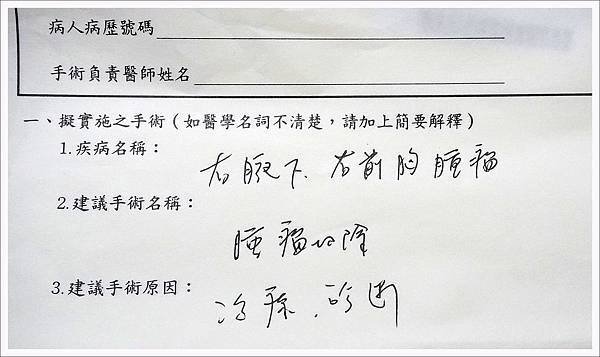 病人病歷號碼
手術負責醫師姓名
一、擬實施之手術（如醫學名詞不清楚，請加上簡要解釋）
1.疾病名稱：
右腋下、右前胸腫瘤
2.建議手術名稱：
腫瘤切除
3.建議手術原因：
治療、診斷